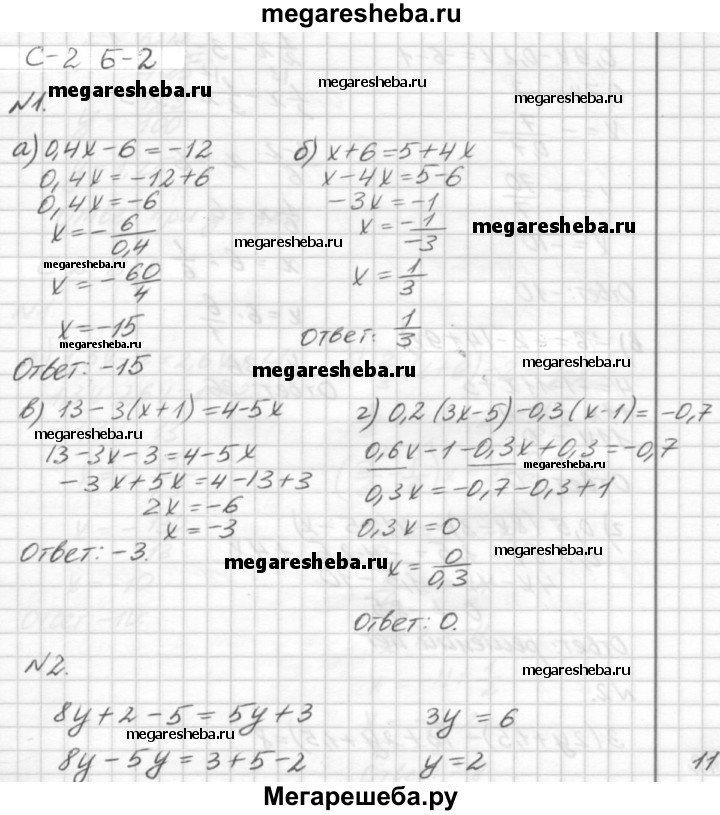 megaresheba.ru
С-2 Б-2
megaresheba.ru
megaresheba.ru
megaresheba.ru
№1.
а) 0,4x - 6 = -12
0,4x = -12+6
0,4x = -6
x = - 6/0,4
megaresheba.ru
megaresheba.ru
x = - 60/4
x = -15
megaresheba.ru
Ответ: -15
б) x+6 = 5+4x
x-4x = 5-6
-3x = -1
x = -1/-3
megaresheba.ru
x = 1/3
Ответ: 1/3
megaresheba.ru
megaresheba.ru
в) 13-3(x+1) = 4-5x
megaresheba.ru
13-3x-3 = 4-5x
-3x+5x = 4-13+3
2x = -6
x = -3
Ответ: -3.
megaresheba.ru
г) 0,2(3x-5)-0,3(x-1) = -0,7
0,6x-1-0,3x+0,3 = -0,7
megaresheba.ru
0,3x = -0,7-0,3+1
0,3x = 0
megaresheba.ru
x = 0/0,3
Ответ: 0.
№2.
megaresheba.ru
8y+2-5 = 5y+3
megaresheba.ru
8y-5y = 3+5-2
3y = 6
megaresheba.ru
y = 2
11
Мегарешеба.ру